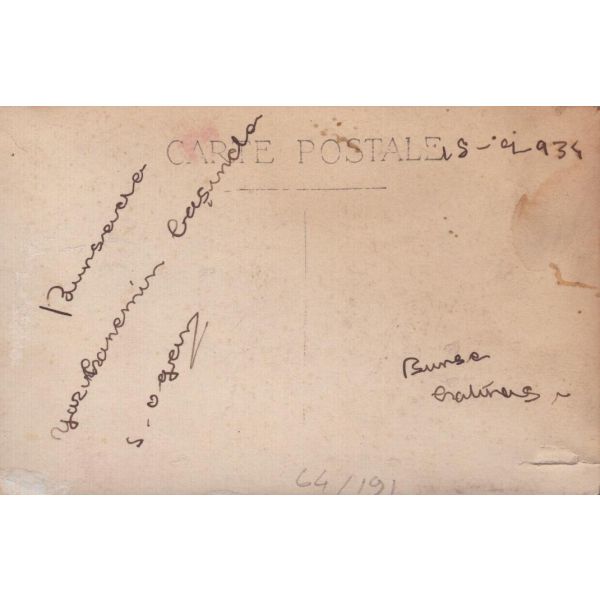 CARTE POSTALE
Bursada
yazıhanemin başında
Bursa
hatırası
64/191